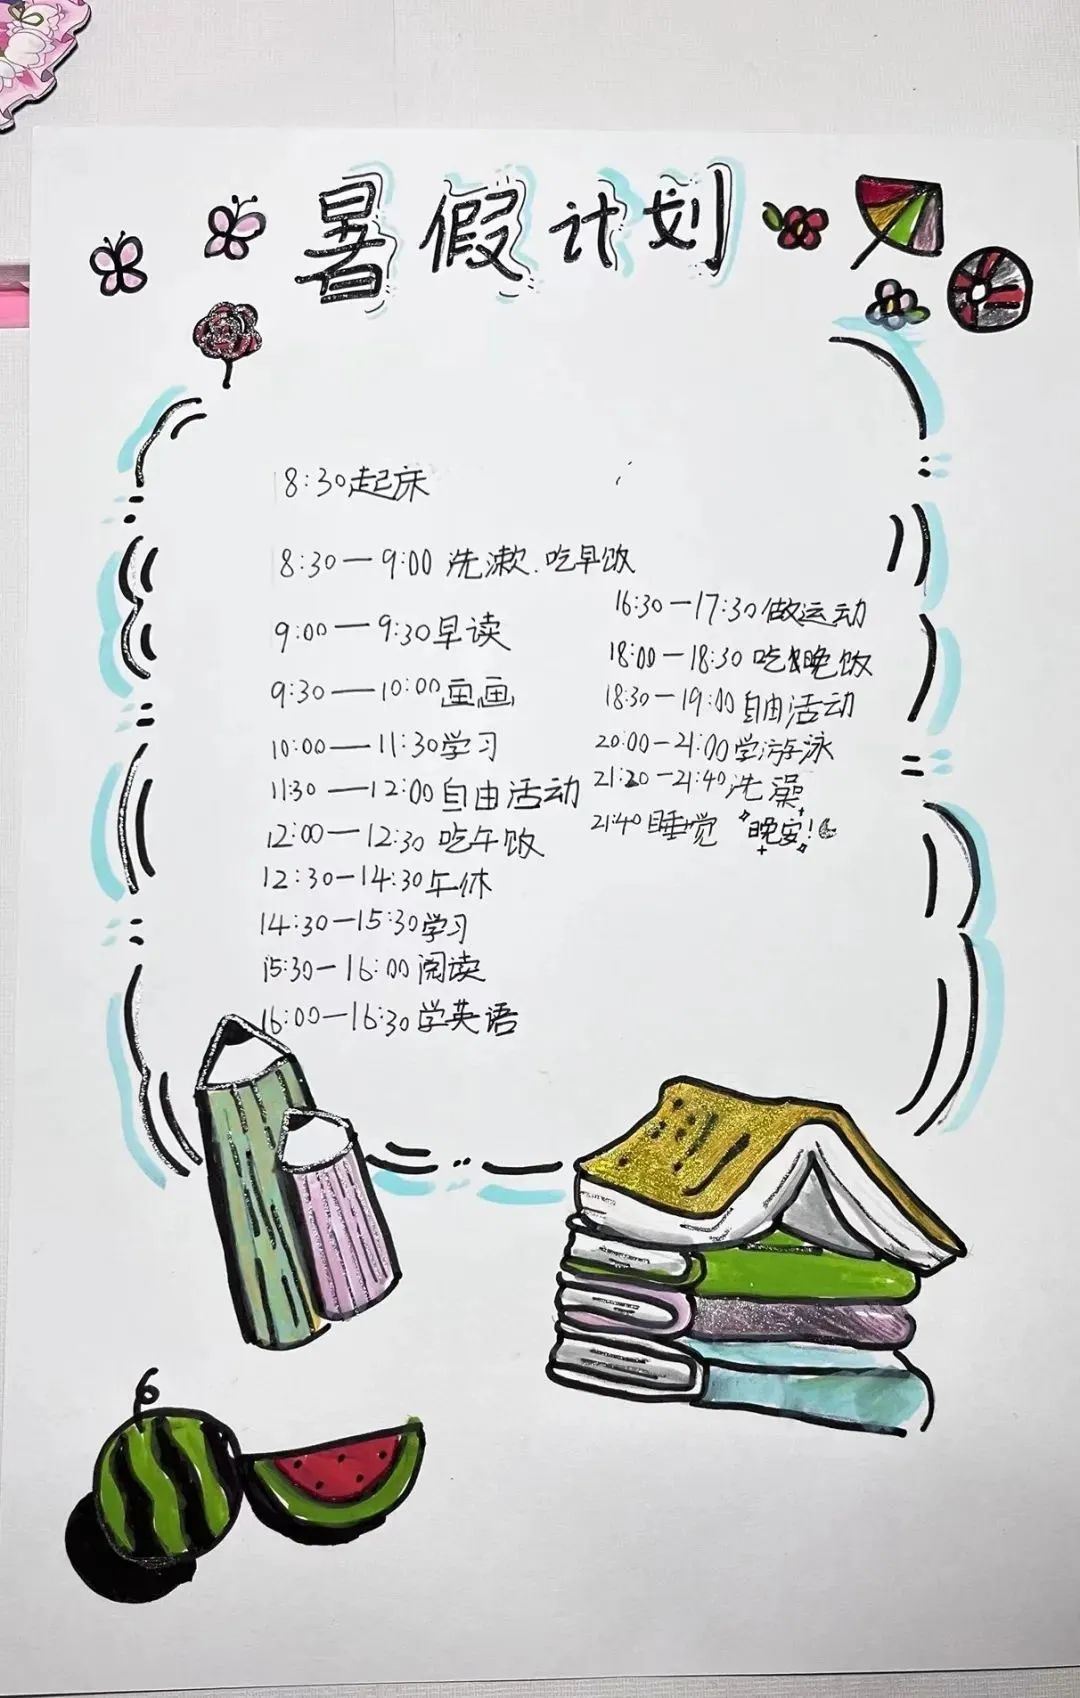 暑假计划
8:30起床
8:30—9:00 洗漱.吃早饭
9:00—9:30早读
9:30—10:00画画
10:00—11:30学习
11:30—12:00自由活动
12:00—12:30 吃午饭
12:30—14:30午休
14:30—15:30学习
15:30—16:00阅读
16:00—16:30学英语
16:30—17:30做运动
18:00—18:30 吃晚饭
18:30—19:00自由活动
20:00—21:00学游泳
21:20—21:40洗澡
21:40睡觉 晚安!